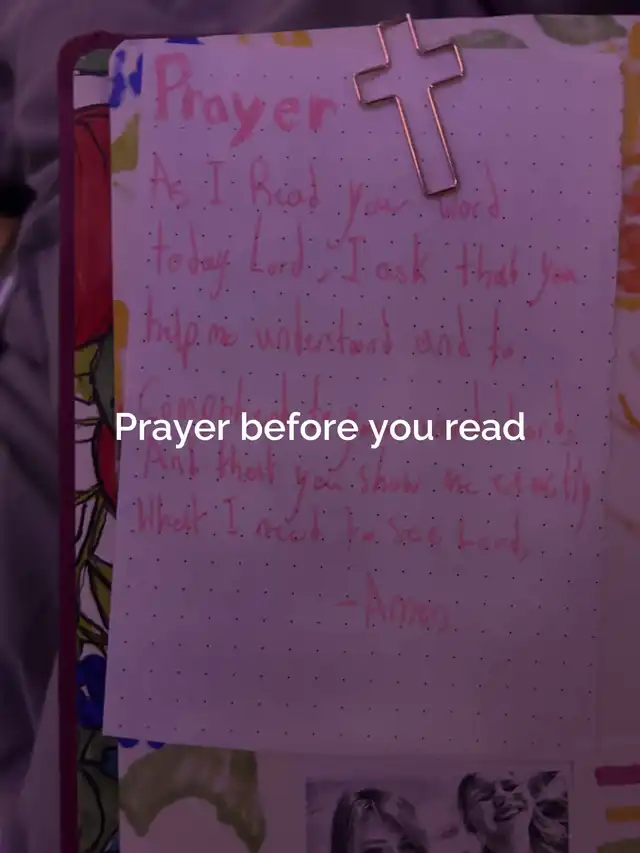 Prayer
As I Read your word
today Lord, I ask that you
help me understand and to
Prayer before you read
And that you show me exactly
What I need to see Lord,
- Amen